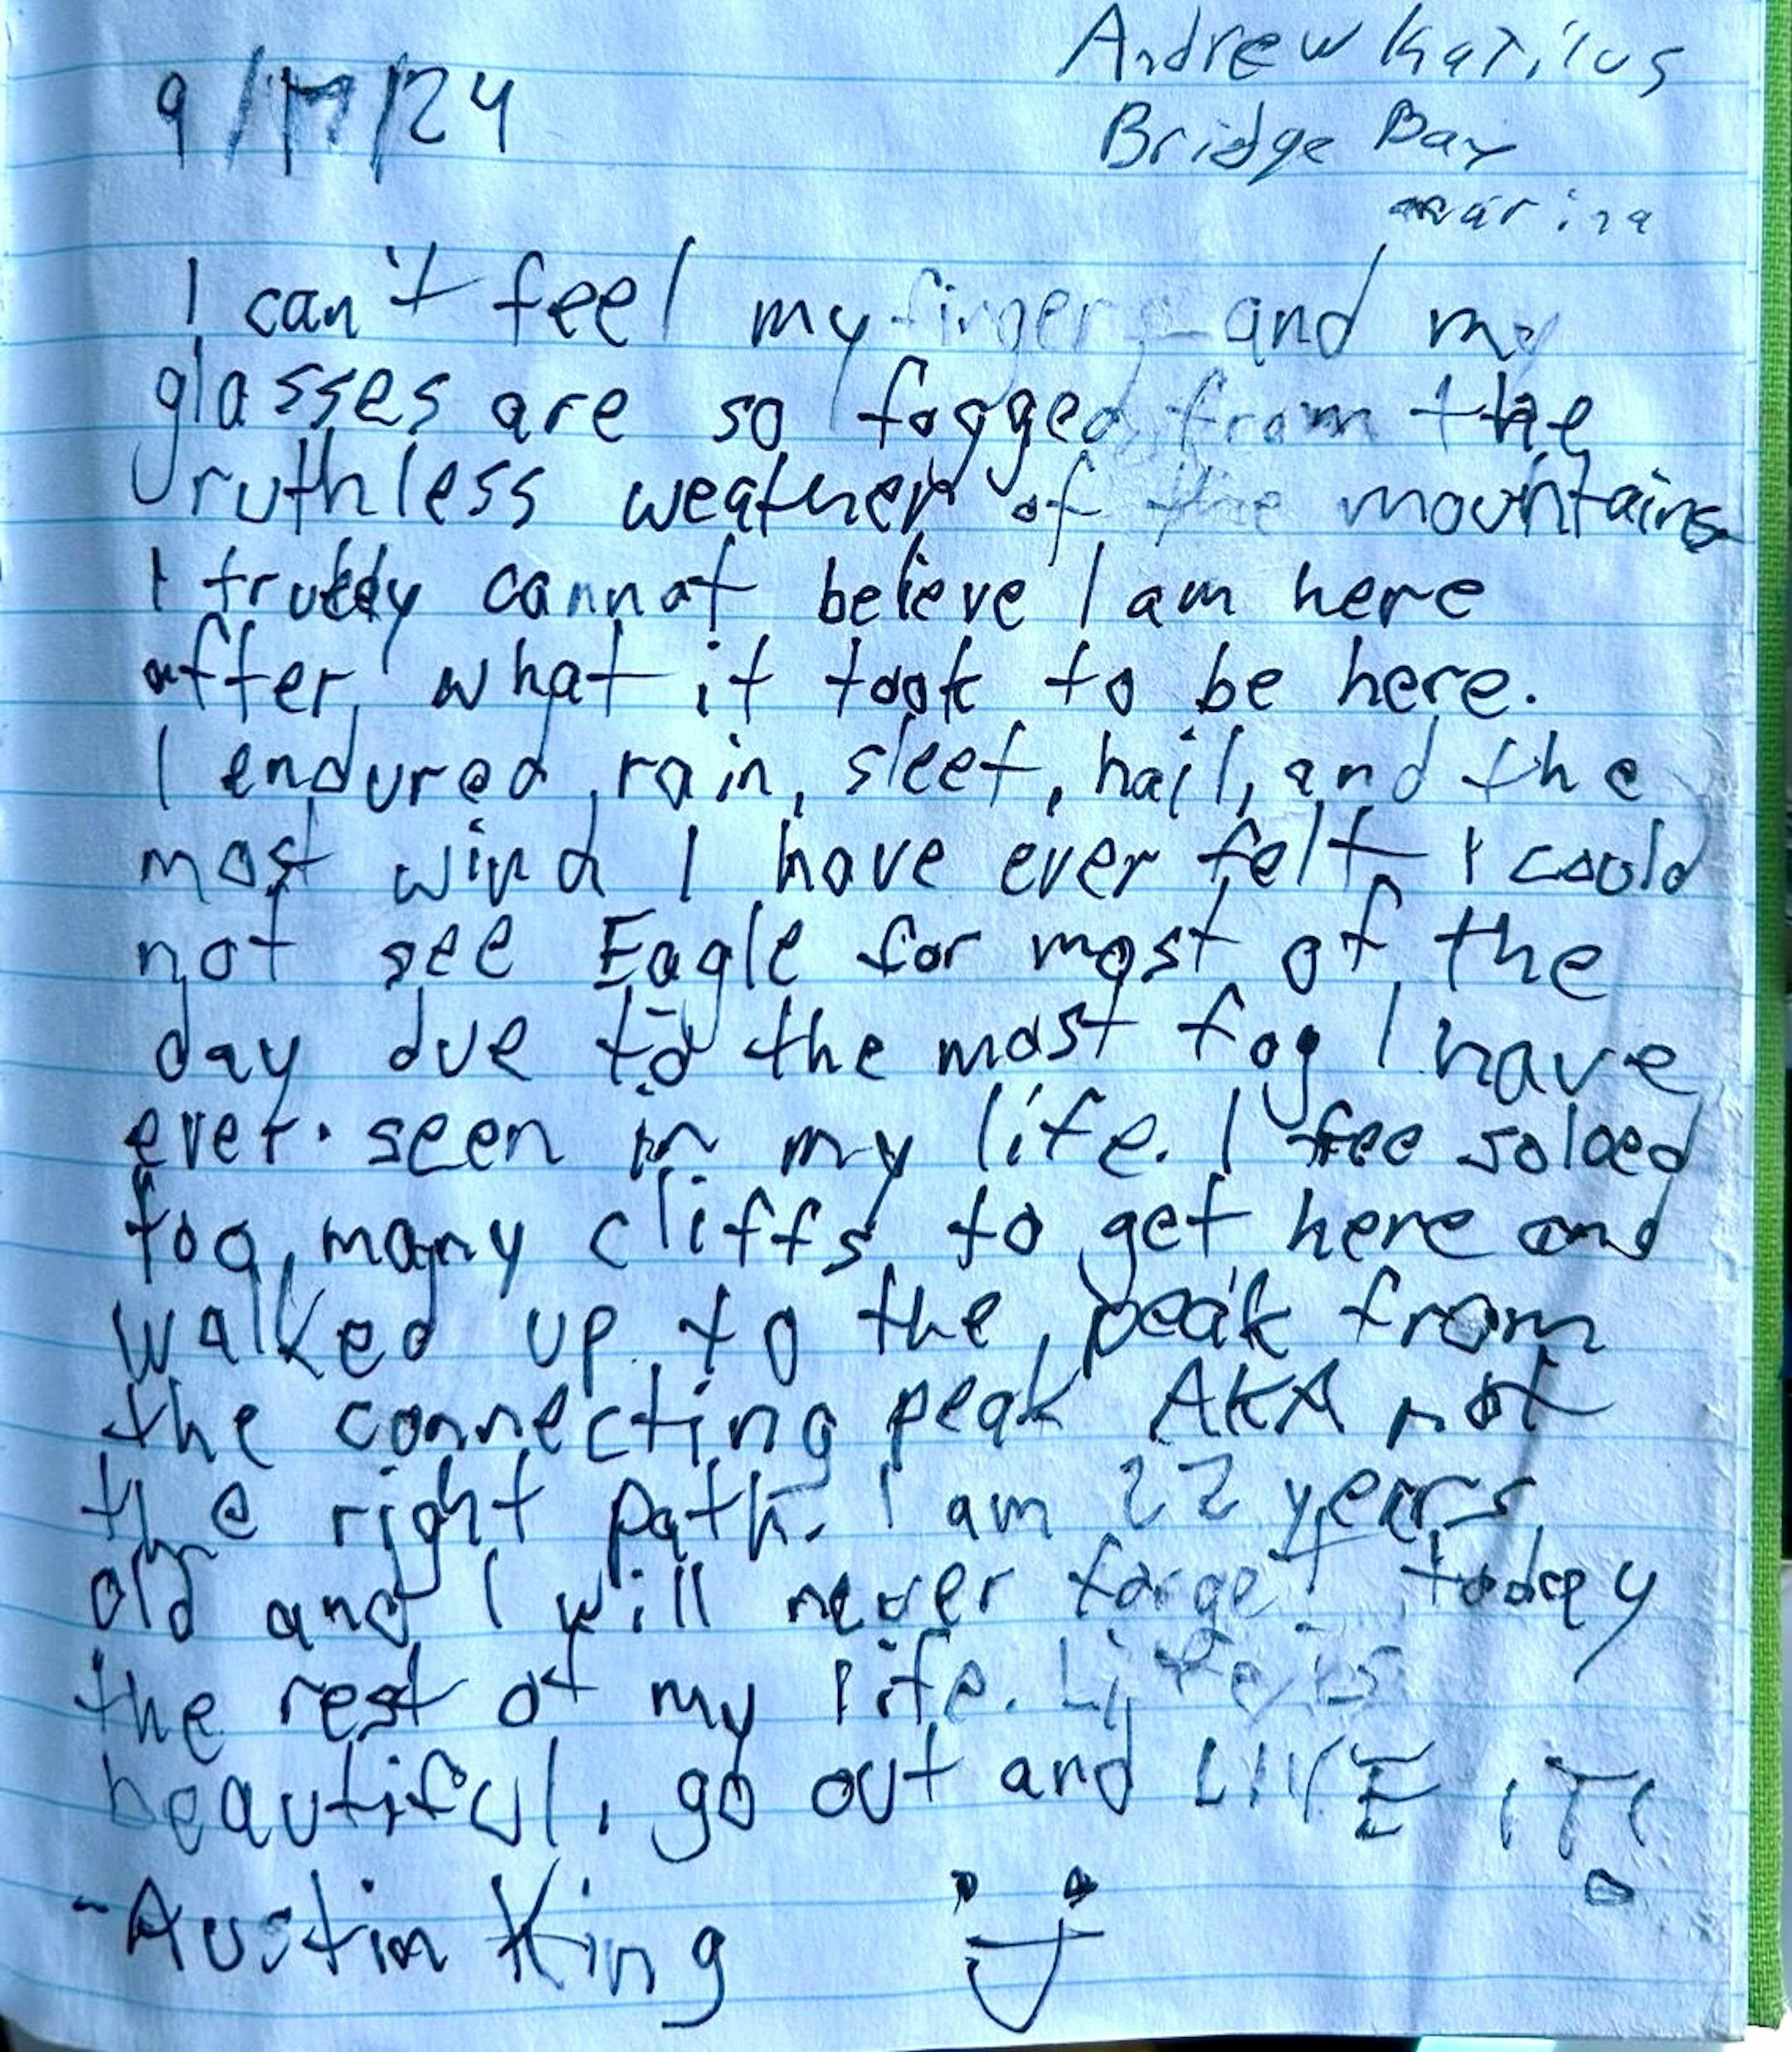 9/17/24
Andrew
Bridge Bay
marina
I can't feel my fingers and my
glasses are so fogged from the
ruthless weather of the mountains
I truly cannot believe I am here
after what it took to be here.
I endured rain, sleet, hail, and the
most wind I have ever felt I could
not see Eagle for most of the
day due to the most fog I have
ever seen in my life. I free soloed
too many cliffs to get here and
walked up to the peak from
the connecting peak AKA not
the right path. I am 22 years
old and I will never forget today
the rest of my life. Life is
beautiful, go out and LIVE IT!
-Austin King